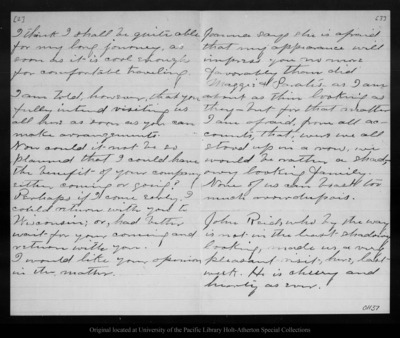 [2]
I think I shall be quite able
for my long journey, as
soon as it is cool enough
for comfortable traveling.
I am told, however, that you
fully intend visiting us
all here as soon as you can
make arrangements.
Now could it not be so
planned that I could have
the benefit of your company
either coming or going?
Perhaps if I came early, I
could return with you to
Wisconsin; or, had better
wait for your coming and
return with you.
I would like your opinion
in the matter.
Joanna says she is afraid
that my appearance will
impress you no more
favorably than did
Maggie's & Sarah's as I am
about as thin looking as
they. And for that matter
I am afraid, from all ac-
counts, that, were we all
stood up in a row, we
would be rather a shadow-
ory looking family.
None of us can boast too
much avoirdupois.
John Reid, who by the way
is not in the least shadowy
looking, made us a very
pleasant visit, here, last
week. He is cheery and
hearty as ever.
Original located at University of the Pacific Library Holt-Atherton Special Collections